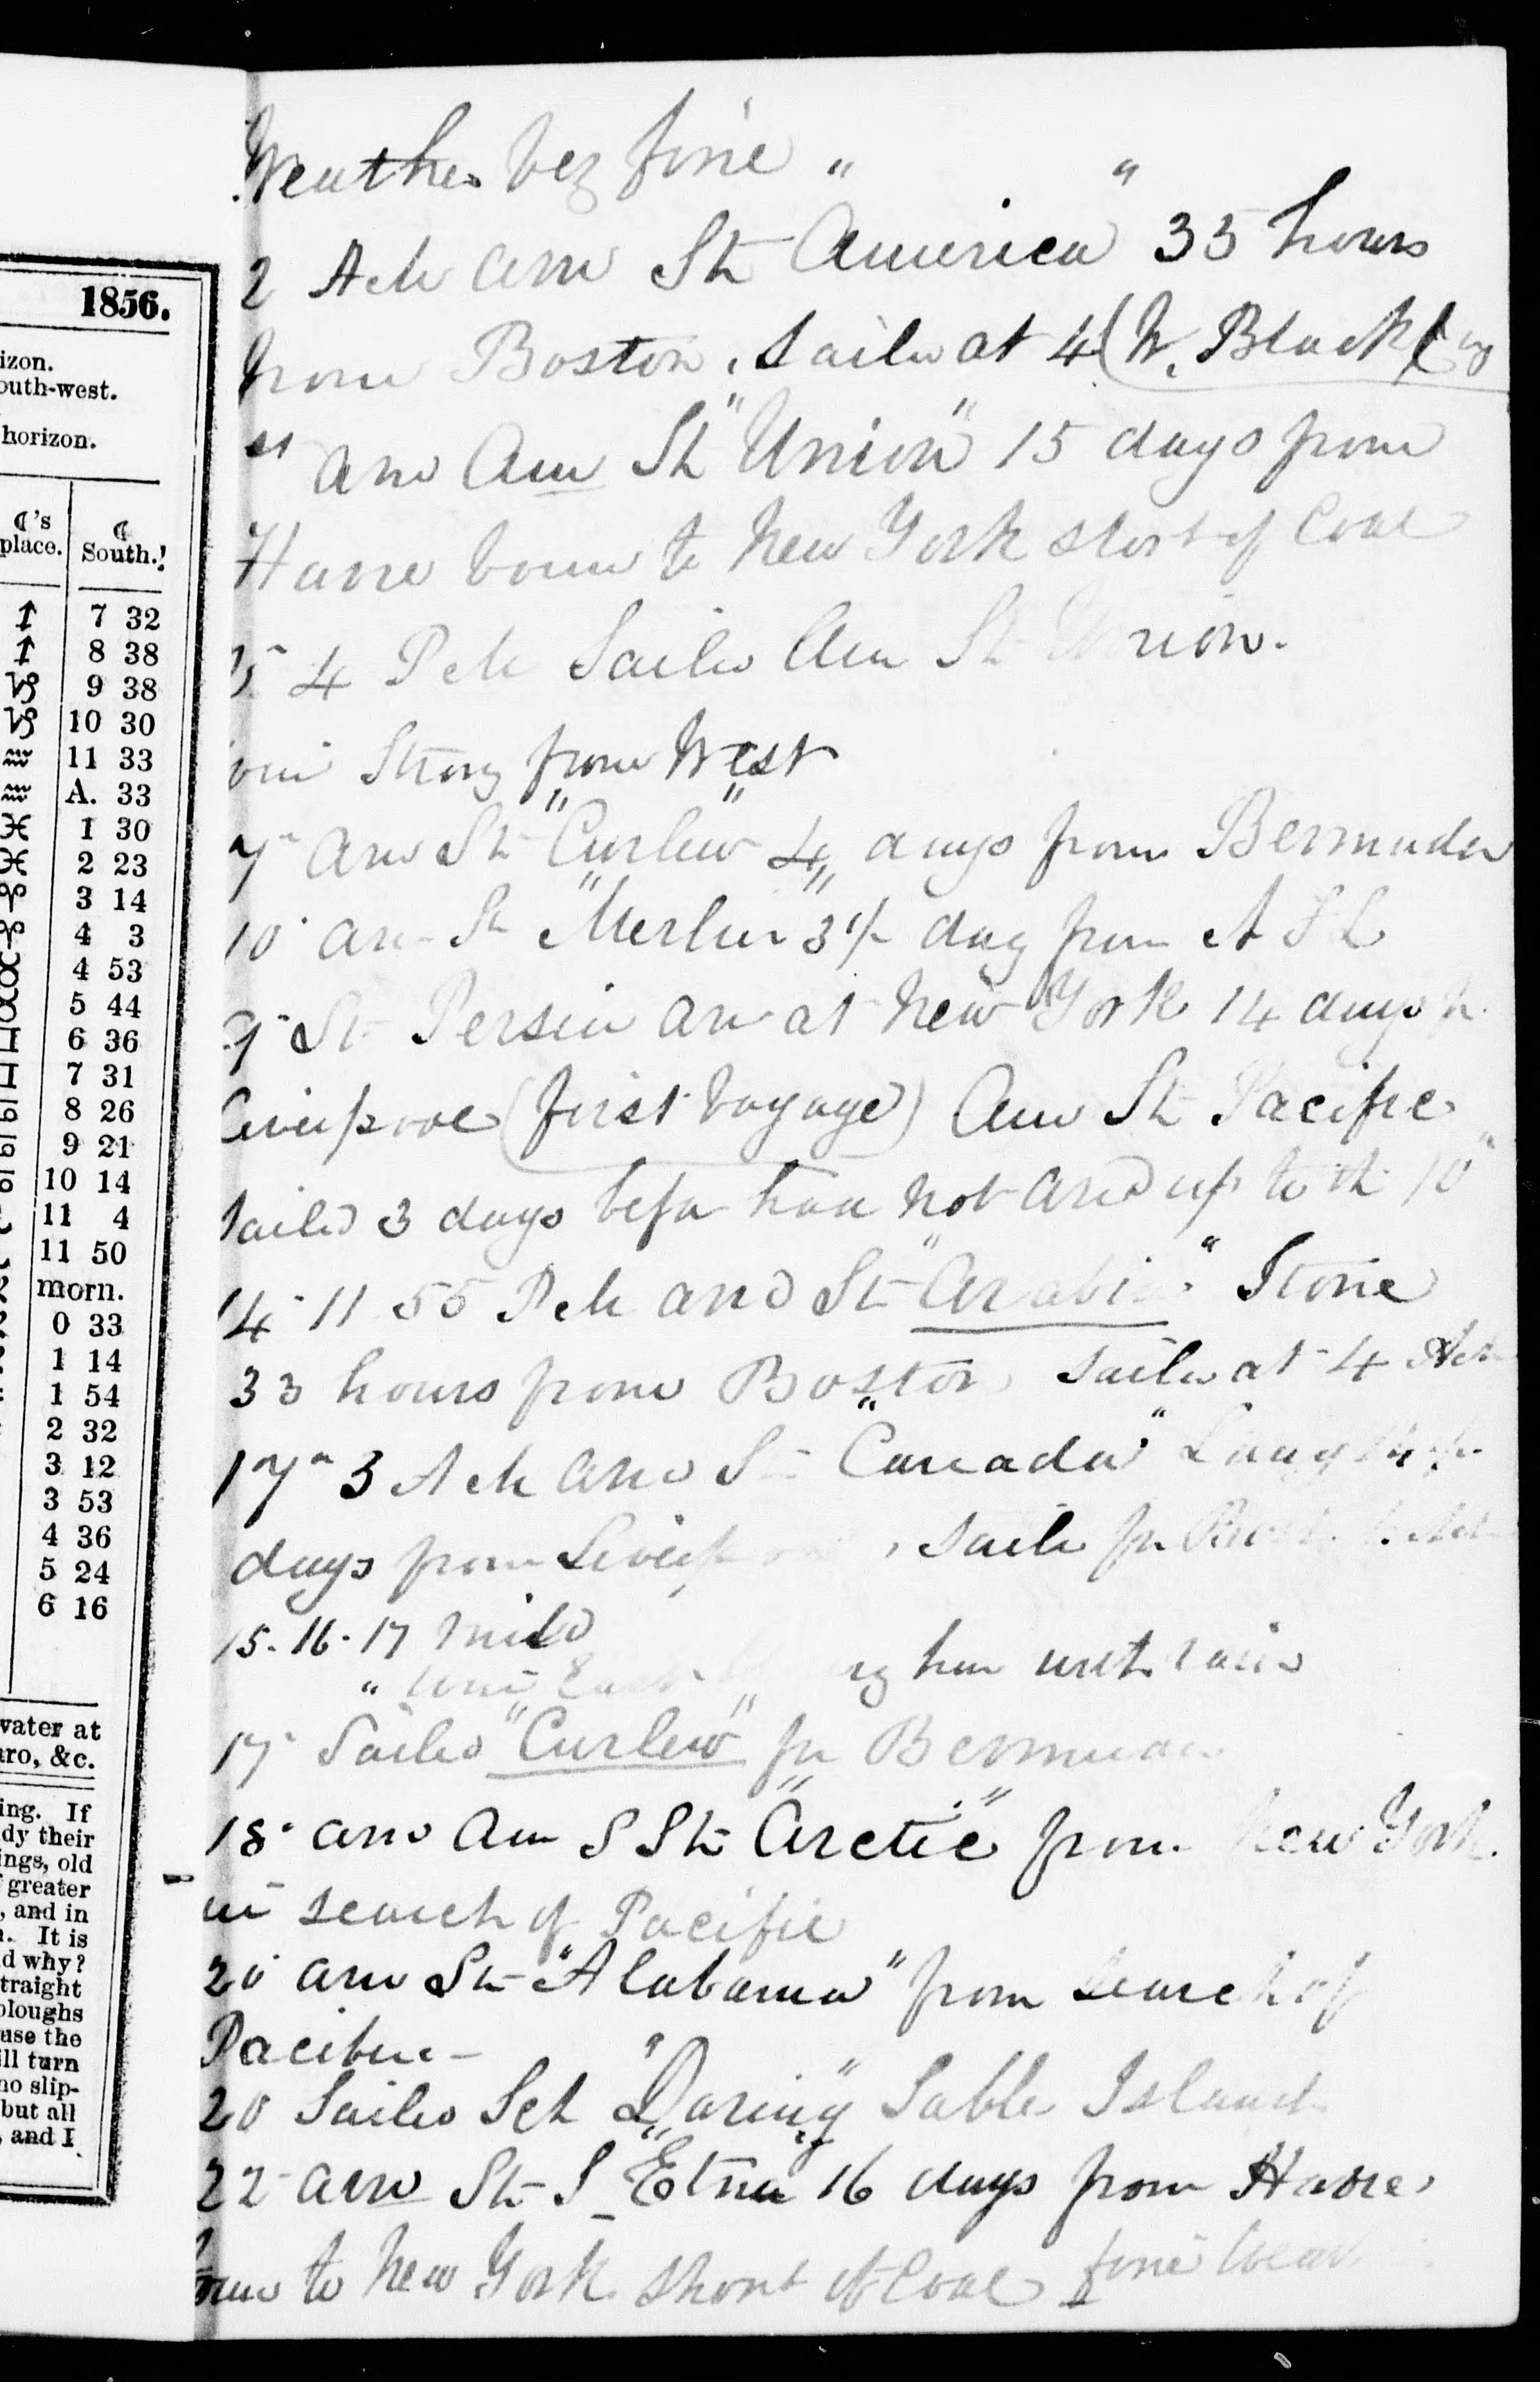 1856.
izon.
outh-west.
horizon.
☾'s place. ☾ South.
7 32
8 38
9 38
10 30
11 33
A. 33
1 30
2 23
3 14
4 3
4 53
5 44
6 36
7 31
8 26
9 21
10 14
11 4
11 50
morn.
0 33
1 14
1 54
2 32
3 12
3 53
4 36
5 24
6 16
water at
aro, &c.
ing. If
dy their
ings, old
greater
, and in
. It is
d why?
traight
ploughs
use the
ill turn
no slip-
but all
, and I
Weather vey fine "
2 AM arrv St "America" 35 hours
from Boston. Saild at 4 (W. Black
" arrv Am St "Union" 15 days from
Havre boun to New York short of Coal
15 4 PM Saild Am St Union.
Strong from West
7 arrv St "Curlew" 4 days from Bermuda
10 arr St "Merlin" 3 1/ day from
9 St Persia arr at New York 14 days
Liverpool (first Voyage) Am St Pacific
Sailed 3 days befor has not arrd up to th 10"
14 11 55 PM arrd St "Arabia" Stone
33 hours from Boston Saild at 4 AM
17 3 AM arrv St "Canada" Lang
days from Liverpool, Saild fr
15. 16. 17 Mild
" with rain
17 Saild "Curlew" fr Bermuda
18 arrv Am S St "Arctic" from New York
in search of Pacific
20 arrv St "Alabama" from search of
Pacific
20 Saild Sch "Daring" Sable Island
22 arrv St S "Etna" 16 days from Havre
boun to New York short of Coal fine